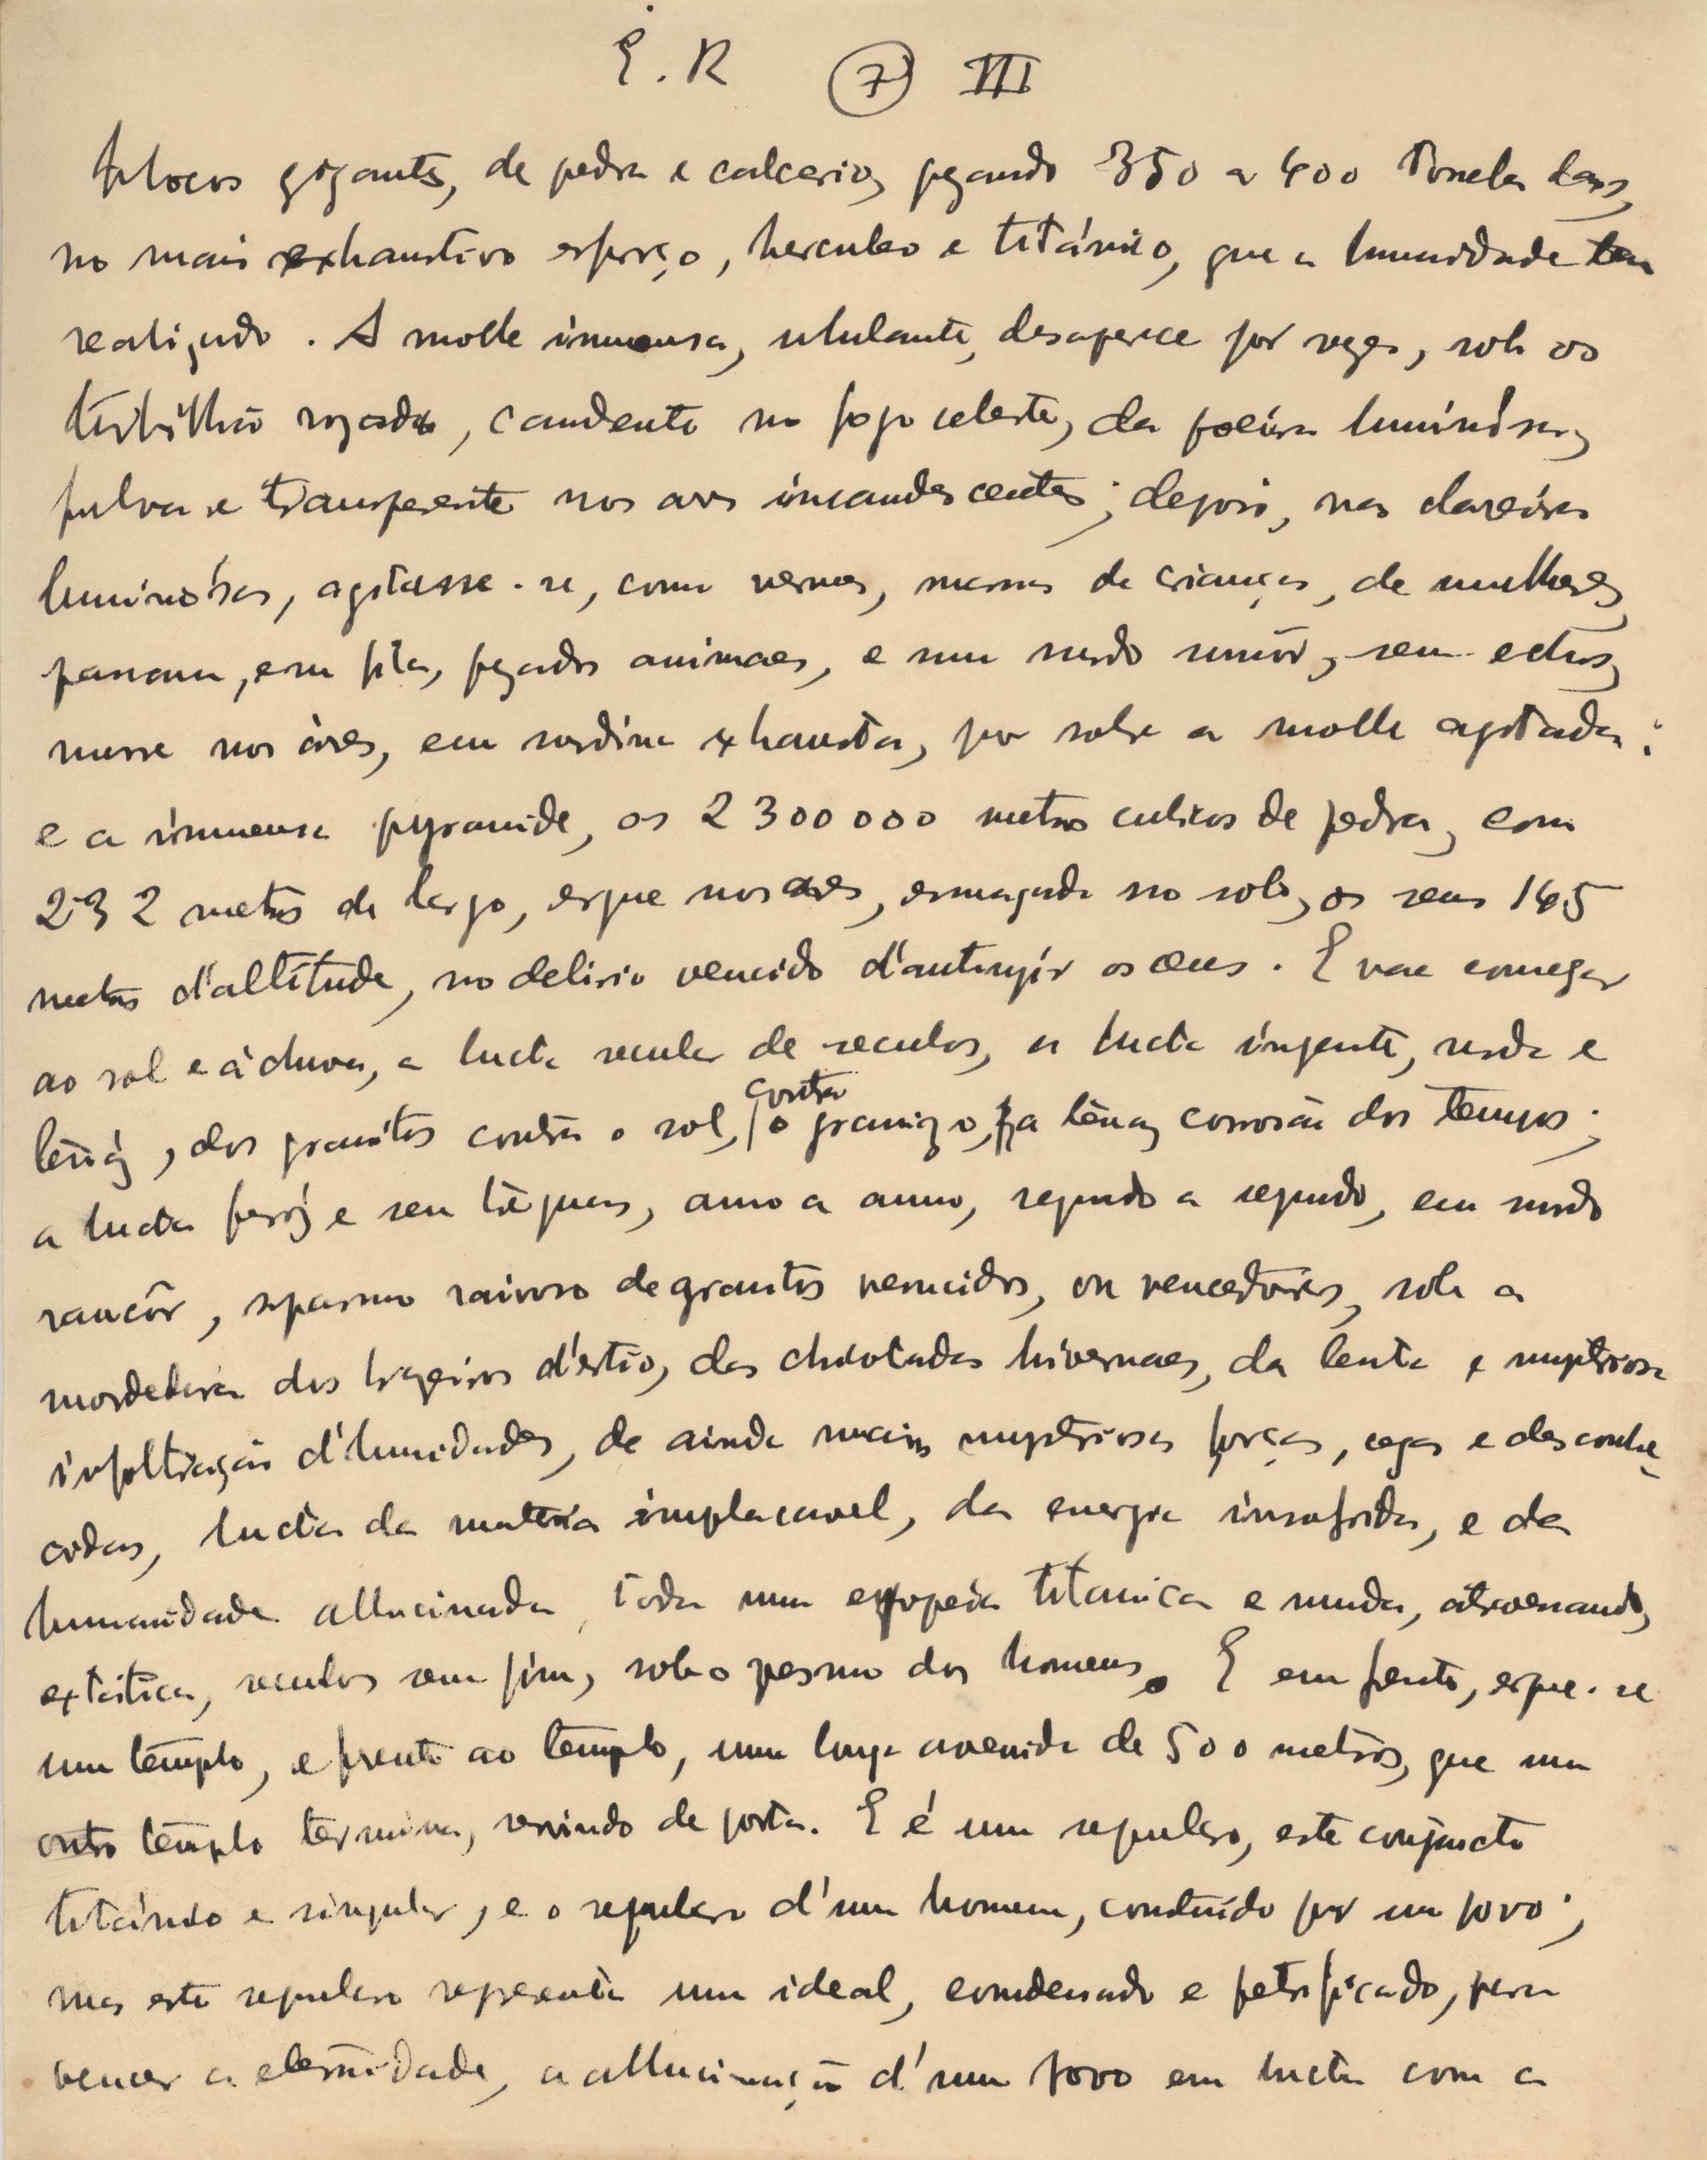 E. R 7 III
blocos gigantes, de pedra e calcario, pezando 350 a 400 Toneladas,
no mais exhaustivo esforço, herculeo e titánico, que a humanidade tem
realizado. A molle immensa, ululante, desaparece por vezes, sob os
turbilhão rozado, candente no fogo celeste, da poeira luminósa,
fulva e transparente nos ares incandescentes; depois, nas clareiras
luminósas, agitasse-se, como vermes, massas de crianças, de mulheres,
passam, em fila, pezados animaes, e um surdo rumôr, sem echos,
nos áres, em surdina exhausta, por sobre a molle agitada;
e a immensa pyramide, os 2300000 metros cubicos de pedra, com
232 metros de largo, ergue nos ares, esmagada no solo, os seus 145
metros d'altitude, no delirio vencido d'antingir os ceus. E vae começar
ao sol e á chuva, a lucta secular de seculos, a lucta ingente, surda e
tenáz, dos granitos contra o sol, contra o granizo, a tenaz corrosão dos tempos;
a lucta feróz e sem tréguas, anno a anno, segundo a segundo, em surdo
rancôr, espasmo raivoso de granitos vencidos, ou vencedores, sob a
mordedura dos brazeiros d'estio, das chicotadas hivernaes, da lenta e mysteriosa
infiltração d'humidades, de ainda mais mysteriosas forças, cegas e desconhe-
cidas, lucta da materia implacavel, da energia insofrida, e da
humanidade allucinada, toda uma epopeia titanica e muda, atravessando,
extática, seculos sem fim, sob o pasmo dos homens. E em frente, ergue-se
um templo, e frente ao templo, uma larga avenida de 500 metros, que um
outro templo termina, servindo de porta. E é um sepulcro, este conjuncto
titánico e singular, e o sepulcro d'um homem, construido por um povo;
mas este sepulcro representa um ideal, condensado e petrificado, para
vencer a eternidade, a allucinação d'um povo em lucta com a